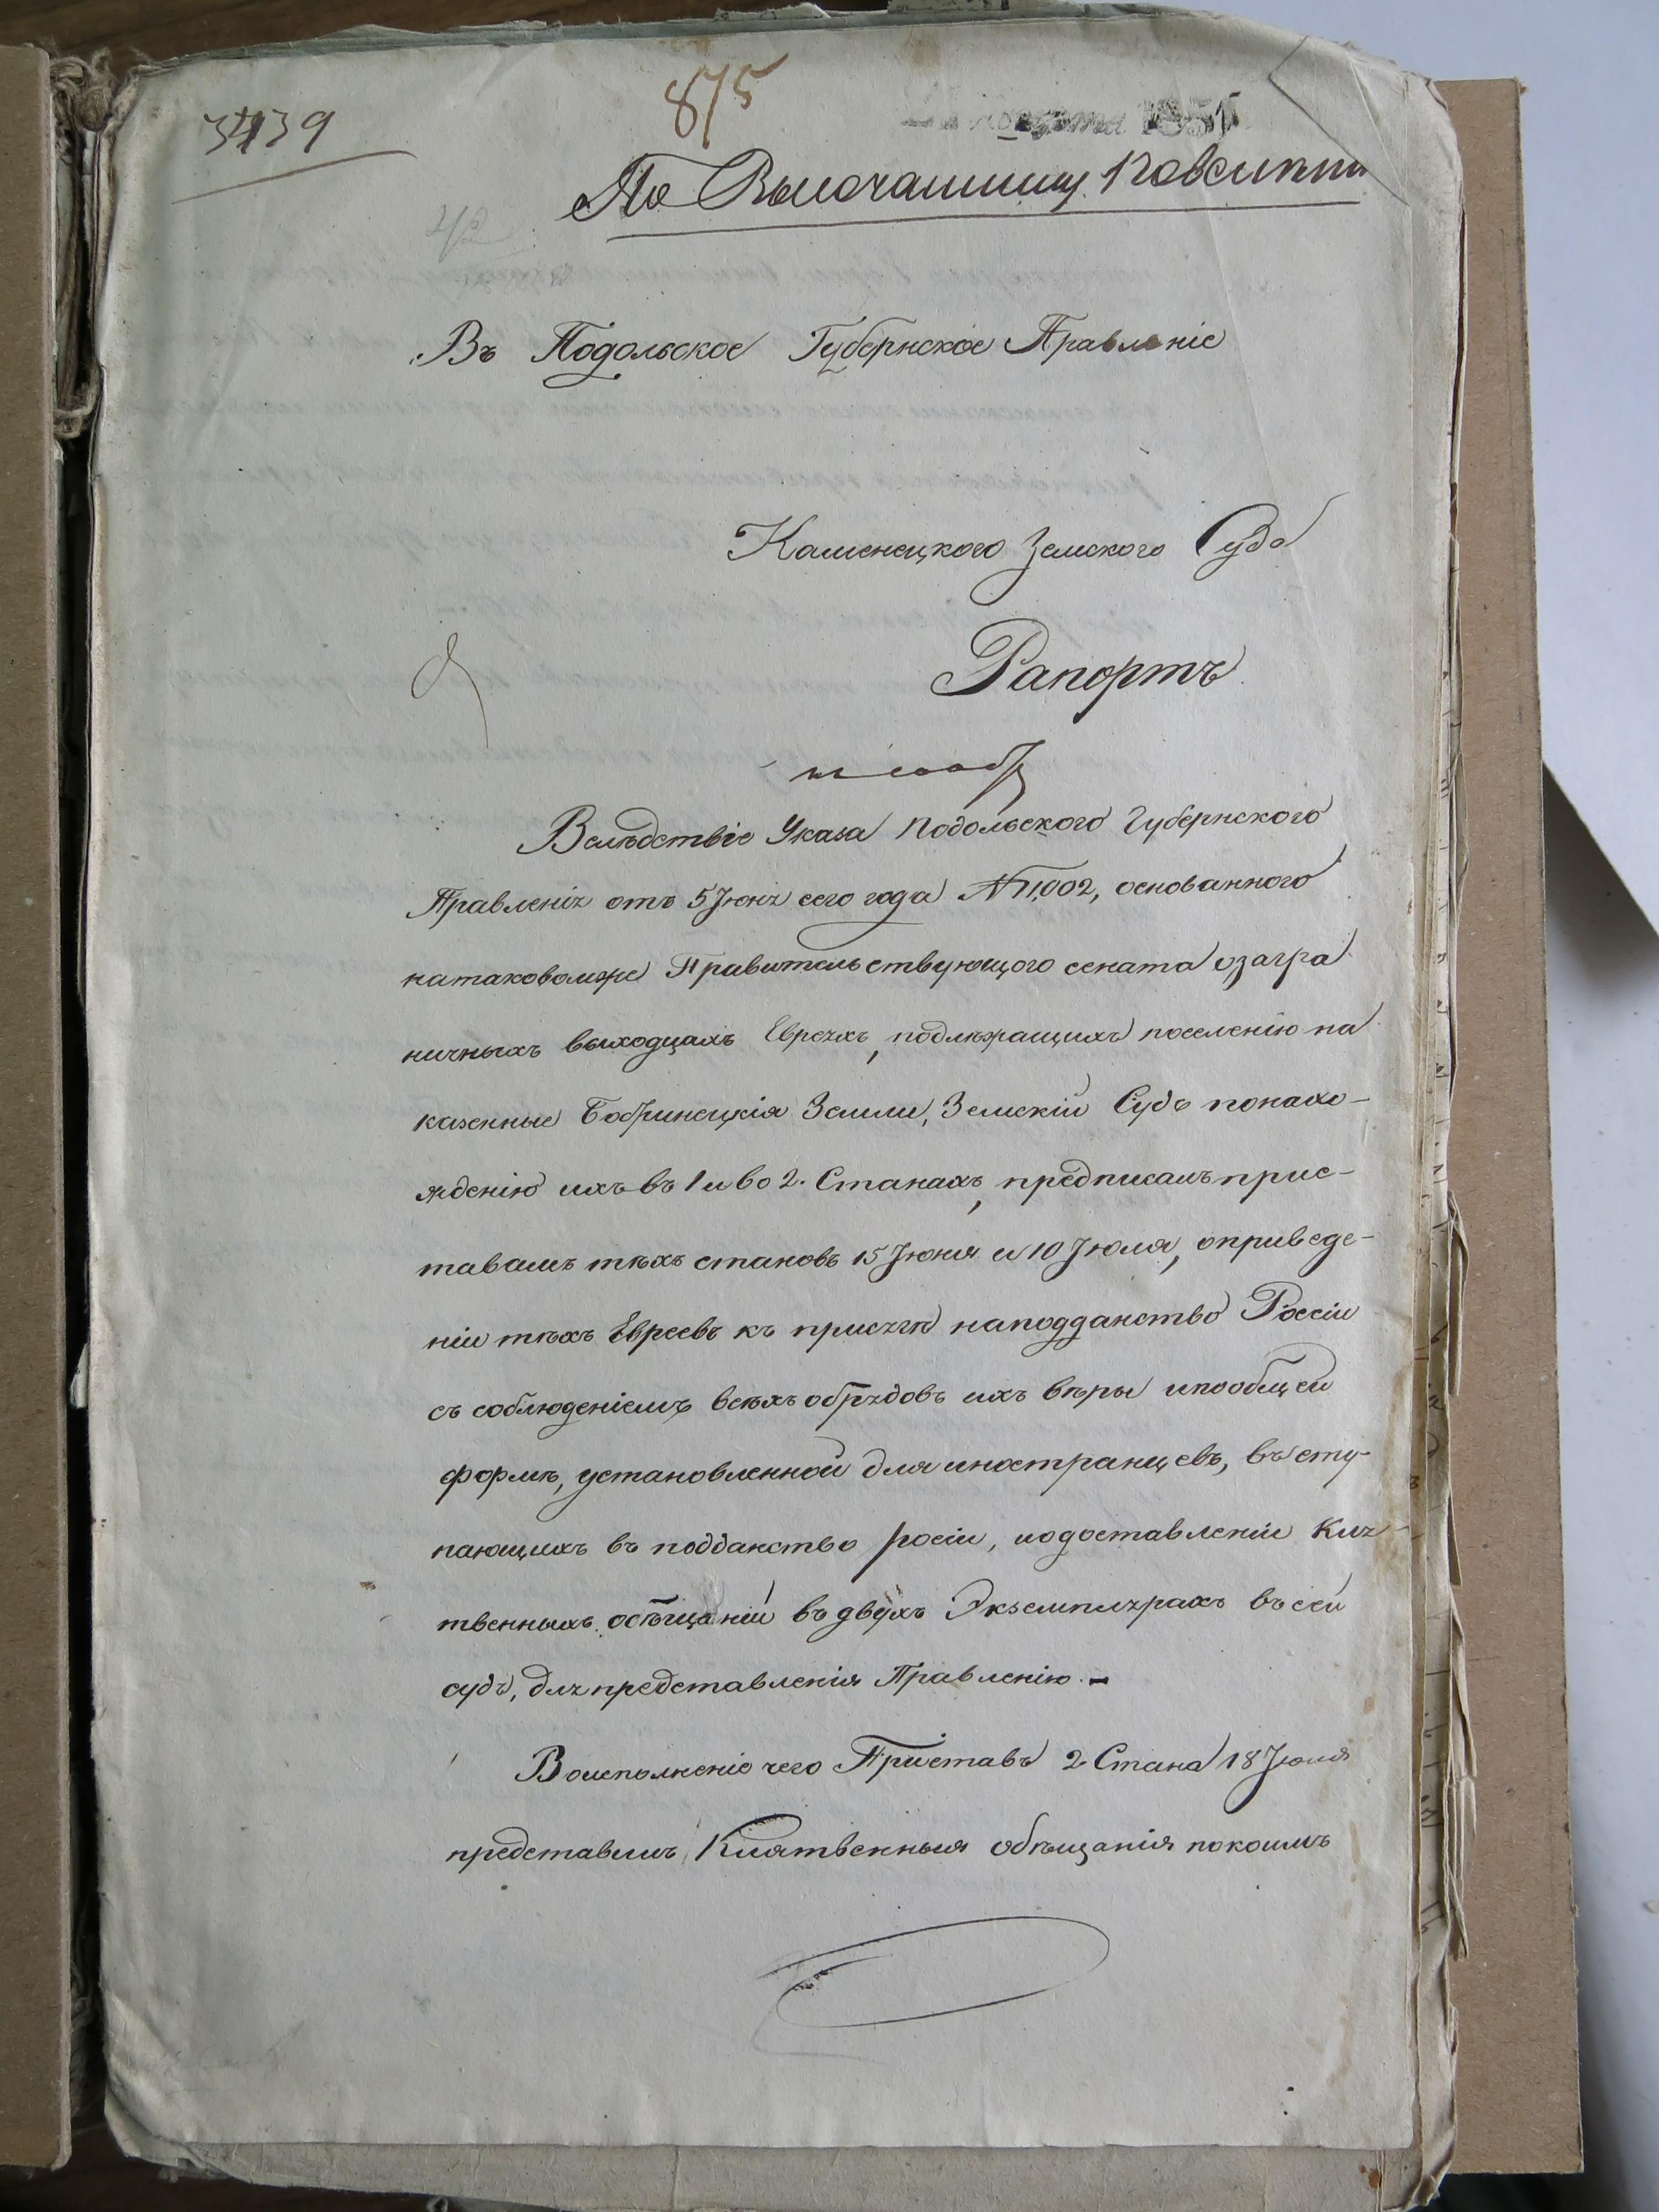 3439
875
Августа 1851
По Высочайшему Повелѣнію
42
Въ Подольское Губернское Правленіе
Каменецкого Земского Суда
Рапортъ
Вслѣдствіе Указа Подольского Губернского
Правленія отъ 5 Іюня сего года № 11,002, основанного
на таковомже Правительствующого сената о загра
ничныхъ выходцахъ Евреяхъ, подлѣжащихъ поселенію на
казенные Бобринецкія Земли, Земскій Судъ понахо-
жденію ихъ въ 1 и во 2. Станахъ, предписалъ прис-
тавамъ тѣхъ становъ 15 Іюня и 10 Іюля, о приведе-
ніи тѣхъ Евреевъ къ присягѣ на подданство Россіи
съ соблюденіемъ всѣхъ обрядовъ ихъ вѣры и по общей
формѣ, установленной для иностранцевъ, въ сту-
пающихъ въ подданство росіи, и о доставленіи Кля-
твенныхъ обѣщаній въ двухъ Экземплярахъ въ сей
судъ, для представленія Правленію. -
Во исполненіе чего Приставъ 2 Стана 18 Іюля
представилъ Клятвенныя обѣщанія по коимъ